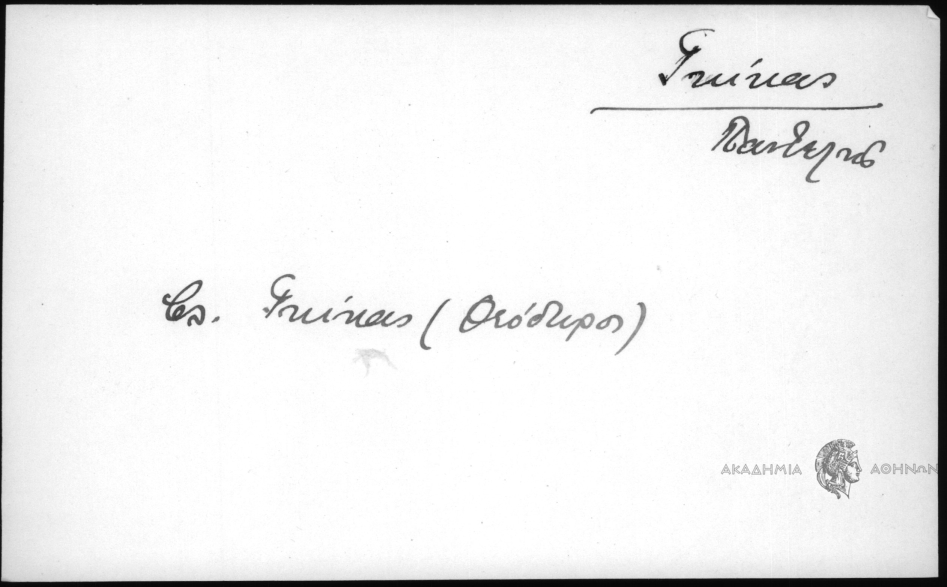 Γκίκας
Παντελής
Βλ. Γκίκας (Θεόδωρος)
ΑΚΑΔΗΜΙΑ ΑΘΗΝΩΝ